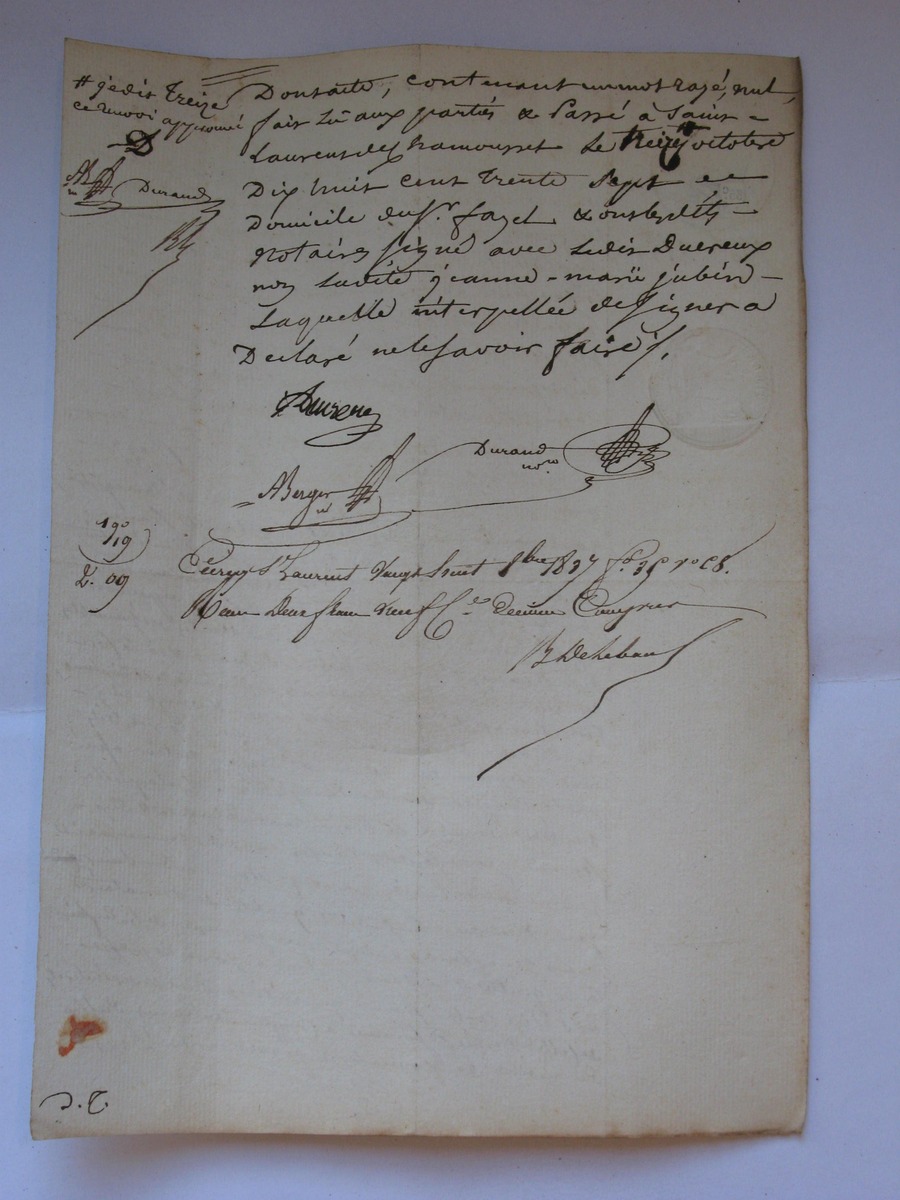 # je dis Treize
ce renvoi approuvé
D
AB Durand
Dont acte, contenant un mot rayé, nul,
fait Lû aux parties & Passé à Saint-
Laurent de Chamousset Le Treize octobre
Dix huit cent Trente Sept en
Domicile du Sr. fayet & ont lesdits
Notaires signé avec Ledit Ducreux
non Ladite jeanne-marie jubin
Laquelle interpellée de signer a
Declaré ne le savoir faire /.
Durand
nore
ABerger
nre
190
19
2. 09
St Laurent Vingt huit 8bre 1837 fo. 35 vo C8.
Reçu Deux francs neuf Ces Decime Compris